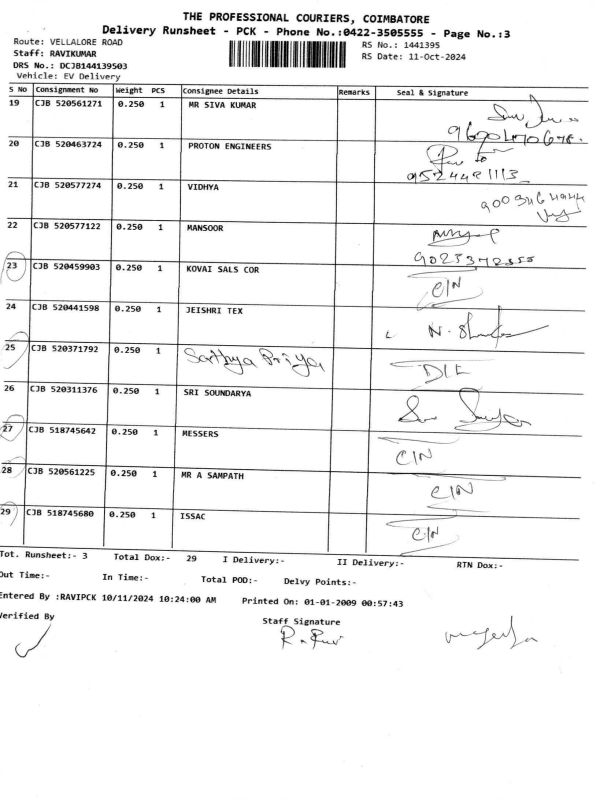 THE PROFESSIONAL COURIERS, COIMBATORE
Delivery Runsheet - PCK - Phone No.:0422-3505555 - Page No.:3
Route: VELLALORE ROAD
RS No.: 1441395
Staff: RAVIKUMAR
RS Date: 11-Oct-2024
DRS No.: DCJB144139503
Vehicle: EV Delivery
S No Consignment No Weight PCS Consignee Details Remarks Seal & Signature
19 CJB 520561271 0.250 1 MR SIVA KUMAR
20 CJB 520463724 0.250 1 PROTON ENGINEERS
21 CJB 520577274 0.250 1 VIDHYA
22 CJB 520577122 0.250 1 MANSOOR
23 CJB 520459903 0.250 1 KOVAI SALS COR C/N
24 CJB 520441598 0.250 1 JEISHRI TEX
25 CJB 520371792 0.250 1 Sathya Priya
26 CJB 520311376 0.250 1 SRI SOUNDARYA
27 CJB 518745642 0.250 1 MESSERS C/N
28 CJB 520561225 0.250 1 MR A SAMPATH C/N
29 CJB 518745680 0.250 1 ISSAC C/N
Tot. Runsheet:- 3 Total Dox:- 29 I Delivery:- II Delivery:- RTN Dox:-
Out Time:- In Time:- Total POD:- Delvy Points:-
Entered By :RAVIPCK 10/11/2024 10:24:00 AM Printed On: 01-01-2009 00:57:43
Verified By
Staff Signature